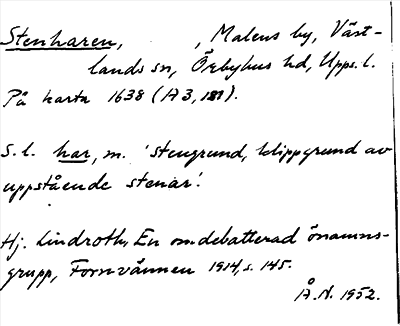 Stenharen, , Malens by, Väst-
lands sn, Örbyhus hd, Upps. l.
På karta 1638 (A3, 181).
S. l. har, m. 'stengrund, klippgrund av
uppstående stenar'.
Hj. Lindroth, En omdebatterad önamns-
grupp, Fornvännen 1914, s. 145.
Å.N. 1952.